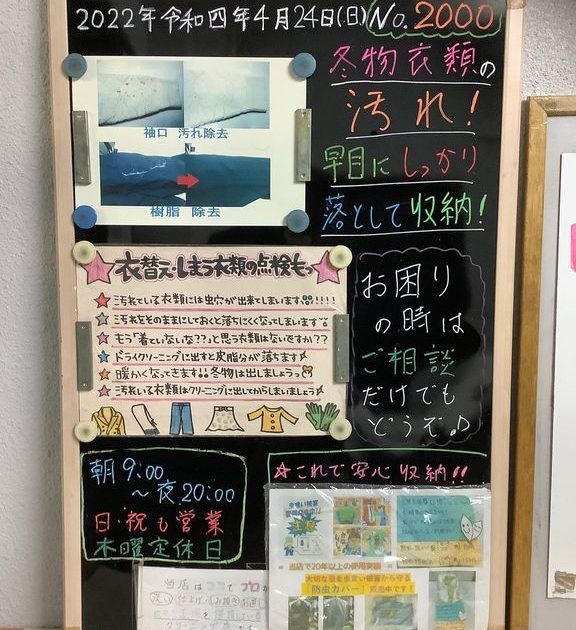 2022年令和四年4月24日(日) No.2000
冬物衣類の
汚れ!
早目にしっかり
落として収納!
袖口 汚れ除去
樹脂 除去
衣替え・しまう衣類の点検もっ
汚れている衣類には虫穴が出来てしまいます!!!!
汚れをそのままにしておくと落ちにくくなってしまいます
もう「着ないな??」と思う衣類はないですか??
ドライクリーニングに出すと皮脂分が落ちます
暖かくなってきます!!冬物は出しましょうっ
汚れいる衣類はクリーニングに出してからしまいましょう
お困り
の時は
ご相談
だけでも
どうぞ♪
朝9:00
~夜20:00
日・祝も営業
木曜定休日
☆これで安心収納!!
当店で20年以上の使用実績
大切な服を虫食い被害から守る
「防虫カバー」販売中です!
当店はココでプロが